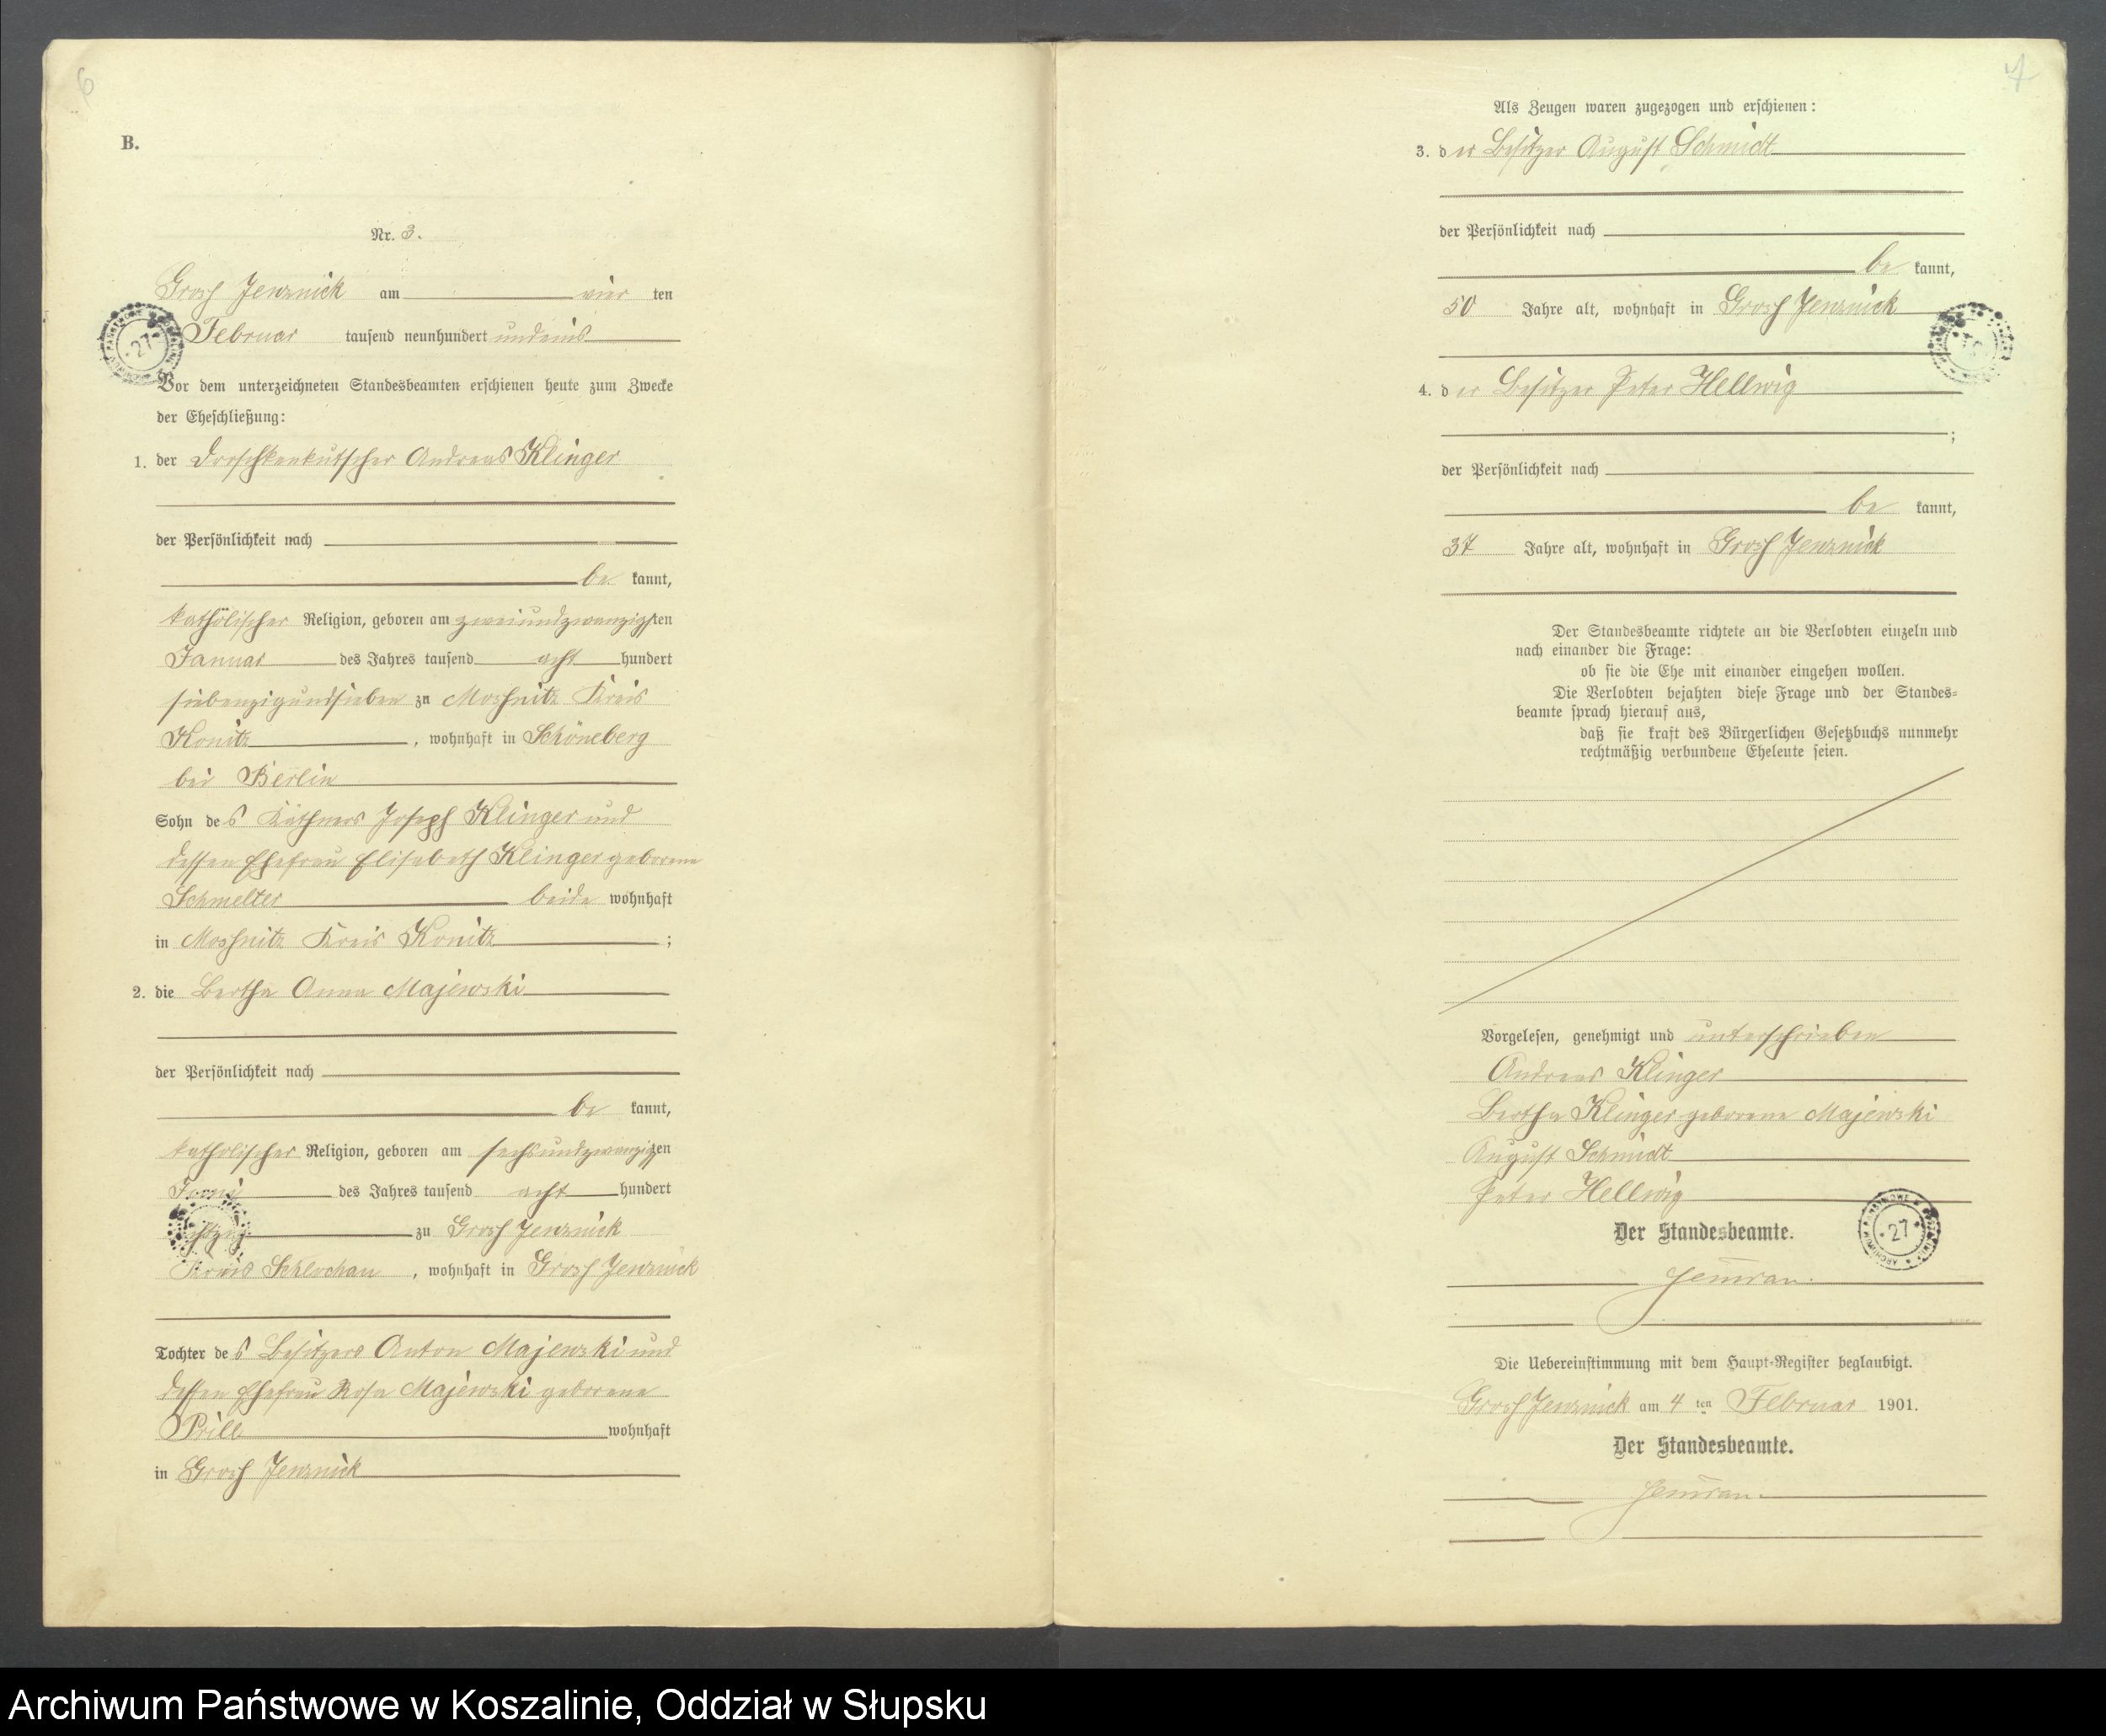 6
B.
Nr. 3.
Gross Jenznick am vier ten
Februar tausend neunhundert undeins
Vor dem unterzeichneten Standesbeamten erschienen heute zum Zwecke
der Eheschließung:
1. der Droschkenkutscher Andreas Klinger
der Persönlichkeit nach
be kannt,
katholischer Religion, geboren am zweiundzwanzigsten
Januar des Jahres tausend acht hundert
siebenzigundsieben zu Mosnitz Kreis
Konitz, wohnhaft in Schöneberg
bei Berlin
Sohn des Käthners Joseph Klinger und
dessen Ehefrau Elisabeth Klinger geborene
Schmelter beide wohnhaft
in Mosnitz Kreis Konitz;
2. die Bertha Anna Majewski
der Persönlichkeit nach
be kannt,
katholischer Religion, geboren am sechsundzwanzigsten
des Jahres tausend acht hundert
zu Gross Jenznick
Kreis Schlochau, wohnhaft in Gross Jenznick
Tochter des Besitzers Anton Majewski und
dessen Ehefrau Rosa Majewski geborene
Prill wohnhaft
in Gross Jenznick
7
Als Zeugen waren zugezogen und erschienen:
3. der Besitzer August Schmidt
der Persönlichkeit nach
be kannt,
50 Jahre alt, wohnhaft in Gross Jenznick
4. der Besitzer Peter Hellwig
;
der Persönlichkeit nach
be kannt,
37 Jahre alt, wohnhaft in Gross Jenznick
Der Standesbeamte richtete an die Verlobten einzeln und
nach einander die Frage:
ob sie die Ehe mit einander eingehen wollen.
Die Verlobten bejahten diese Frage und der Standes-
beamte sprach hierauf aus,
daß sie kraft des Bürgerlichen Gesetzbuchs nunmehr
rechtmäßig verbundene Eheleute seien.
Vorgelesen, genehmigt und unterschrieben
Andreas Klinger
Bertha Klinger geborene Majewski
August Schmidt
Peter Hellwig
Der Standesbeamte.
27
Die Uebereinstimmung mit dem Haupt-Register beglaubigt.
Gross Jenznick am 4 ten Februar 1901.
Der Standesbeamte.
Archiwum Państwowe w Koszalinie, Oddział w Słupsku